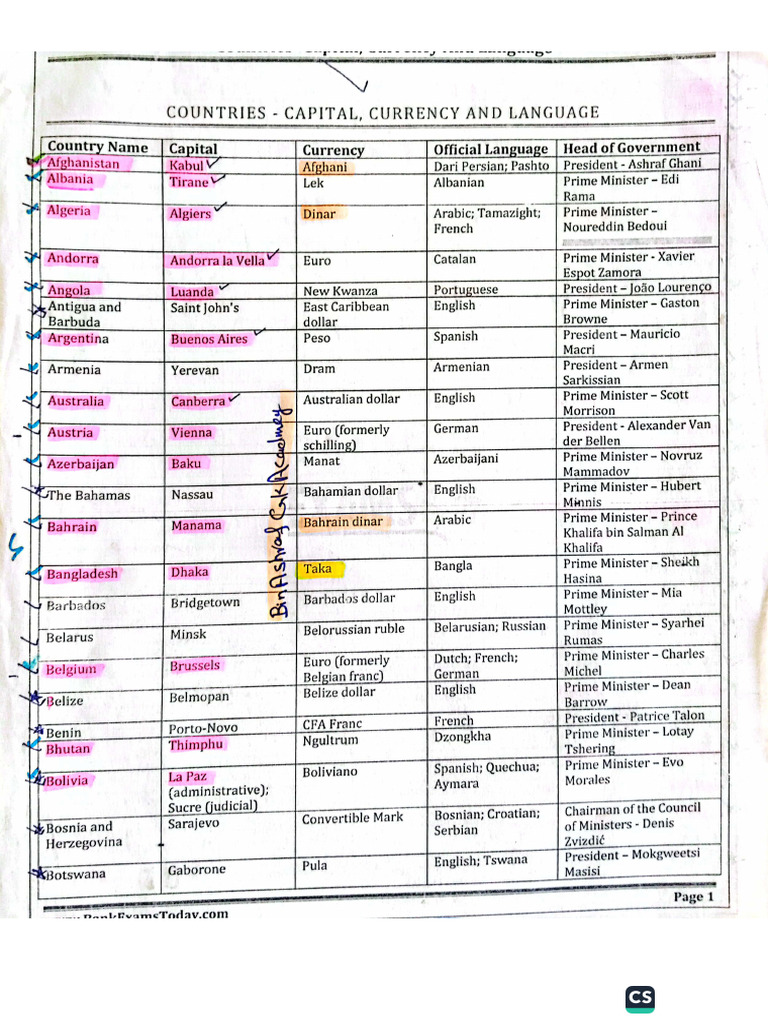 COUNTRIES - CAPITAL, CURRENCY AND LANGUAGE
Country Name Capital Currency Official Language Head of Government
Afghanistan Kabul Afghani Dari Persian; Pashto President - Ashraf Ghani
Albania Tirane Lek Albanian Prime Minister – Edi
Rama
Algeria Algiers Dinar Arabic; Tamazight; Prime Minister –
French Noureddin Bedoui
Andorra Andorra la Vella Euro Catalan Prime Minister - Xavier
Espot Zamora
Angola Luanda New Kwanza Portuguese President – João Lourenço
Antigua and Saint John's East Caribbean English Prime Minister – Gaston
Barbuda dollar Browne
Argentina Buenos Aires Peso Spanish President – Mauricio
Macri
Armenia Yerevan Dram Armenian President – Armen
Sarkissian
Australia Canberra Australian dollar English Prime Minister – Scott
Morrison
Austria Vienna Euro (formerly German President - Alexander Van
schilling) der Bellen
Azerbaijan Baku Manat Azerbaijani Prime Minister – Novruz
Mammadov
The Bahamas Nassau Bahamian dollar English Prime Minister – Hubert
Minnis
Bahrain Manama Bahrain dinar Arabic Prime Minister – Prince
Khalifa bin Salman Al
Khalifa
Bangladesh Dhaka Taka Bangla Prime Minister – Sheikh
Hasina
Barbados Bridgetown Barbados dollar English Prime Minister – Mia
Mottley
Belarus Minsk Belorussian ruble Belarusian; Russian Prime Minister – Syarhei
Rumas
Belgium Brussels Euro (formerly Dutch; French; Prime Minister – Charles
Belgian franc) German Michel
Belize Belmopan Belize dollar English Prime Minister – Dean
Barrow
Benin Porto-Novo CFA Franc French President - Patrice Talon
Bhutan Thimphu Ngultrum Dzongkha Prime Minister – Lotay
Tshering
Bolivia La Paz Boliviano Spanish; Quechua; Prime Minister – Evo
(administrative); Aymara Morales
Sucre (judicial)
Bosnia and Sarajevo Convertible Mark Bosnian; Croatian; Chairman of the Council
Herzegovina Serbian of Ministers - Denis
Zvizdić
Botswana Gaborone Pula English; Tswana President – Mokgweetsi
Masisi
BinAshraf Gk Acadmey
Page 1
BankExamsToday.com
CS